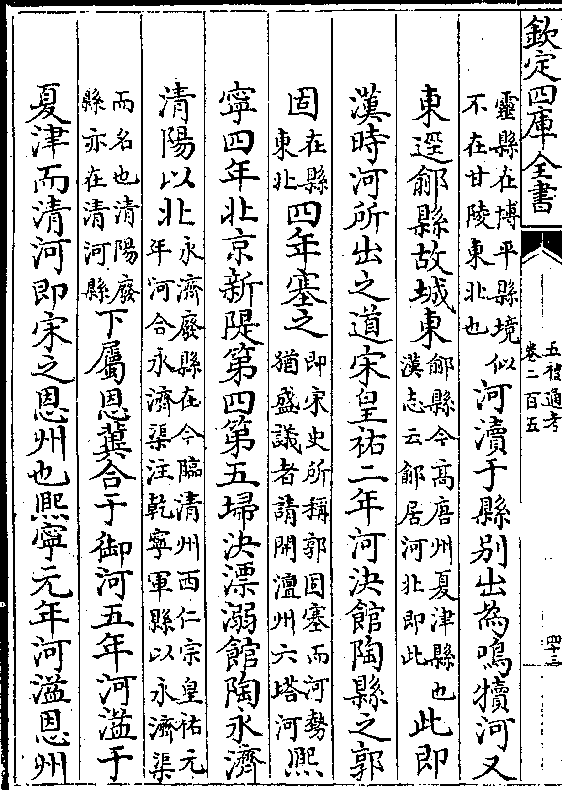 欽定四庫全書
五禮通考
卷二百五
四十三
靈縣在博平縣境似
不在甘陵東北也
河瀆于縣別出為鳴犢河又
東逕鄃縣故城東
鄃縣今高唐州夏津縣也
漢志云鄃居河北即此
此即
漢時河所出之道宋皇祐二年河決館陶縣之郭
固
在縣
東北
四年塞之
即宋史所稱郭固塞而河勢
猶盛議者請開澶州六塔河
熙
寧四年北京新隄第四第五埽決漂溺館陶永濟
清陽以北
永濟廢縣在今臨清州西仁宗皇祐元
年河合永濟渠注乾寧軍縣以永濟渠
而名也清陽廢
縣亦在清河縣
下屬恩冀合于御河五年河溢于
夏津而清河即宋之恩州也熙寧元年河溢恩州